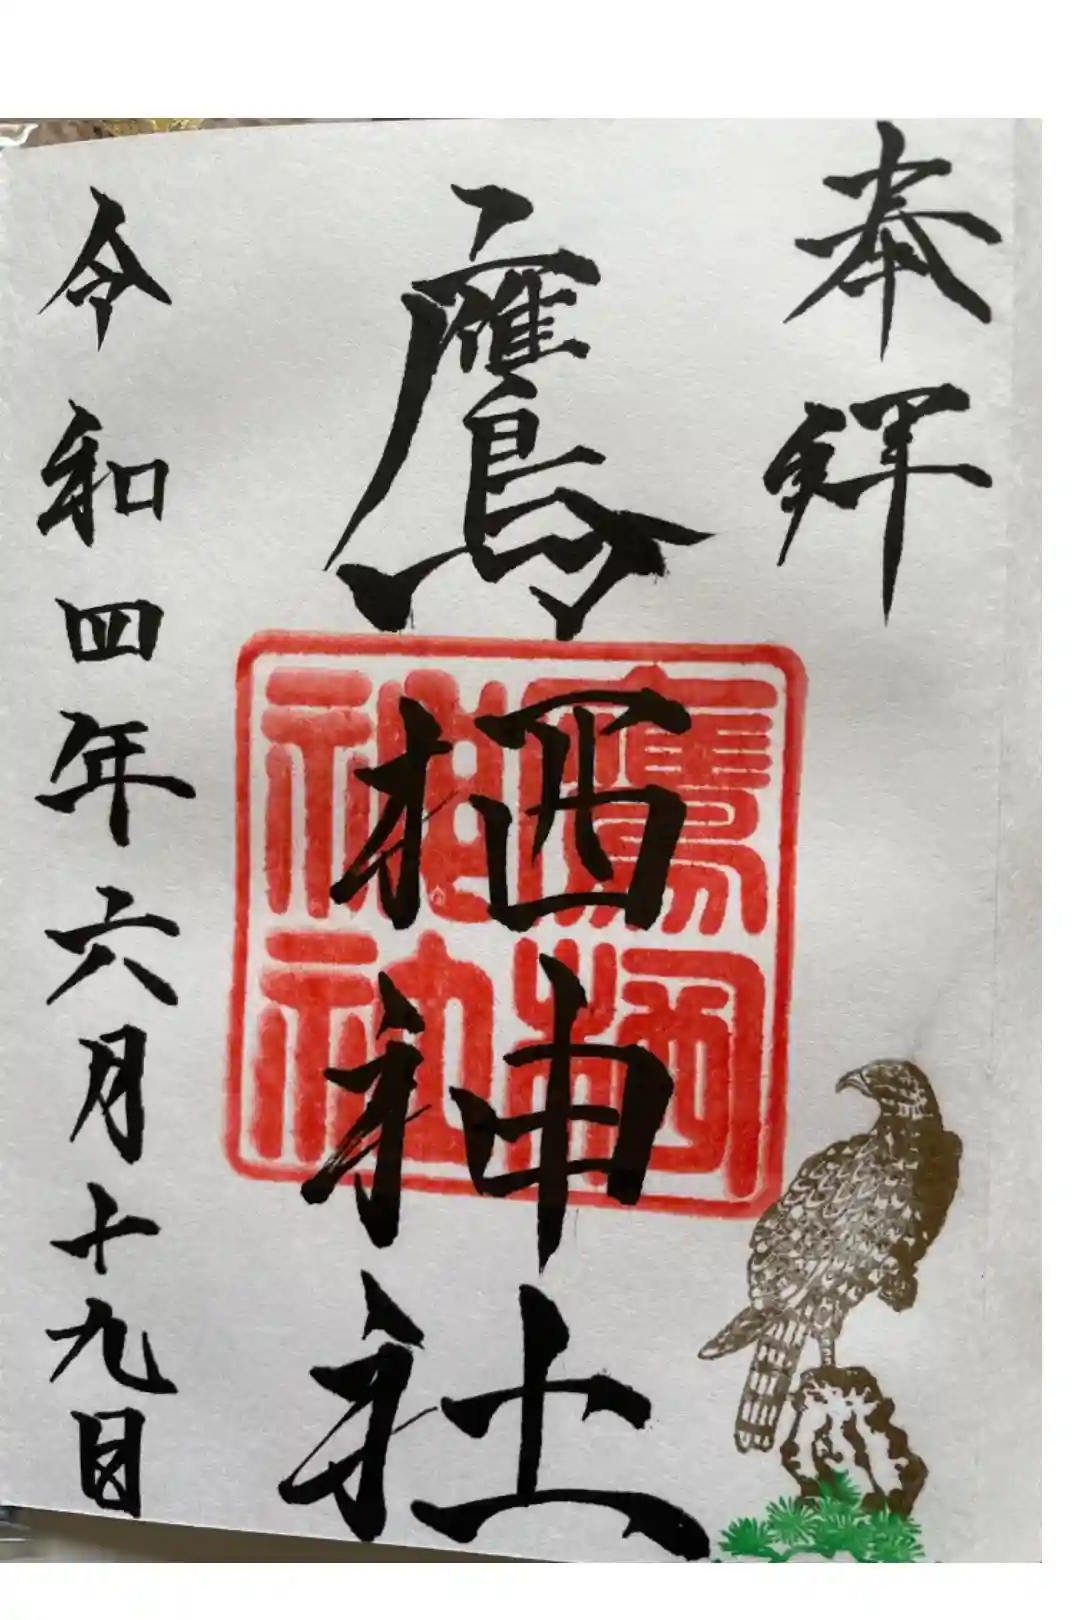 奉拝
鷹栖神社
鷹栖神社
令和四年六月十九日